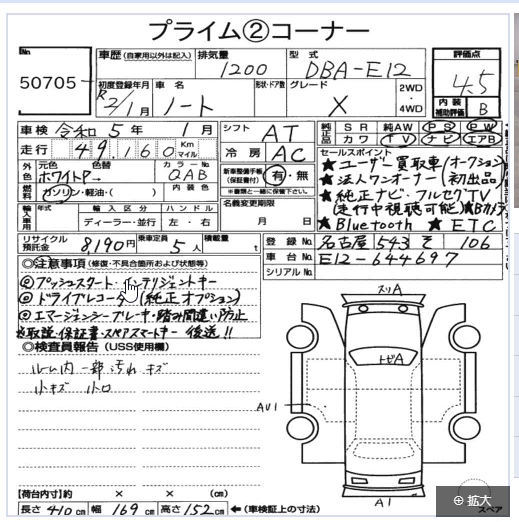 プライム②コーナー
No.
50705
車歴(自家用以外は記入)
排気量
1200
型式
DBA-E12
評価点
4.5
初度登録年月
R2/1月
車名
ノート
形状・ドア数
グレード
X
2WD
・
4WD
内装
補助評価
B
車検 令和 5年 1月
シフト
AT
純正品
SR 純AW PS PW
カワ TV ナビ エアB
走行
49,160
Km
マイル
冷房
AC
セールスポイント
★ユーザー買取車(オークション
★法人ワンオーナー(初出品)
★純正ナビ・フルセグTV
(走行中視聴可能)
★Bluetooth ★ETC
外色
元色
ホワイトP→
色替
カラーNo.
QAB
新車整備手帳
(保証書付)
有・無
※書類と一緒に保管下さい。
燃料
ガソリン・軽油・( )
内装色
名義変更期限
月 日
輸入車用
年式
輸入区分
ハンドル
ディーラー・並行
左・右
リサイクル
預託金
8190円
乗車定員
5人
積載量
t
登録No.
名古屋 543 そ 106
車台No.
E12-644697
シリアルNo.
◎注意事項(修復・不具合箇所および状態等)
◎プッシュスタート・インテリジェントキー
◎ドライブレコーダ(純正オプション)
◎エマージェンシーブレーキ・踏み間違い防止
※取説・保証書・スペアスマートキー 後送!!
◎検査員報告(USS使用欄)
ルーム内一部汚れ キズ
小キズ 小凹
スリA
トビA
AU1
A1
スペア
【荷台内寸】約 × × (cm)
長さ 410cm 幅 169cm 高さ 152cm ←(車検証上の寸法)
拡大